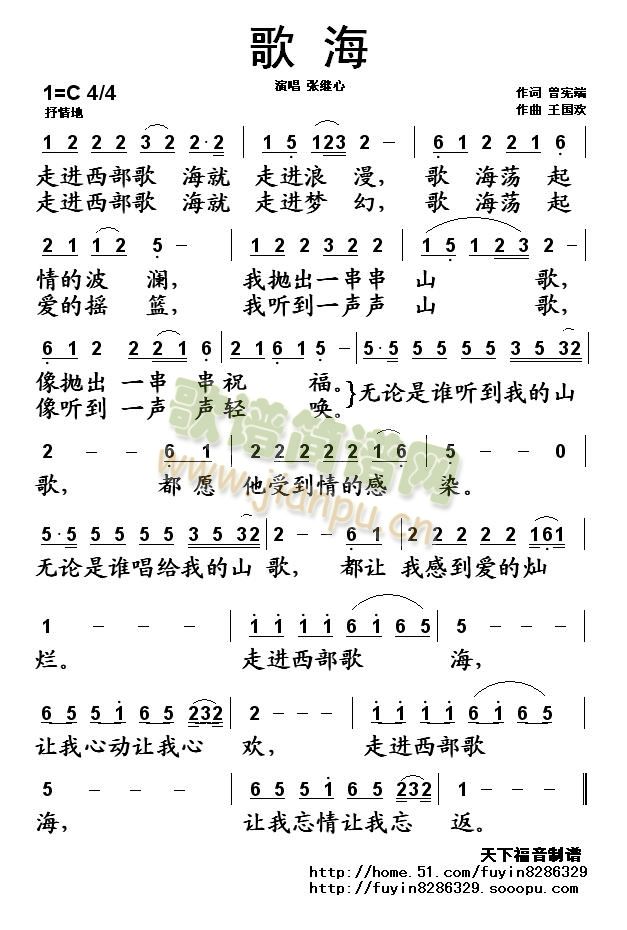 歌 海
演唱 张继心
1=C 4/4
作词 曾宪端
抒情地
作曲 王国欢
1 2 2 2 3 2 2·2 | 1 5 123 2 - | 6 1 2 2 1 6 5 |
走进西部歌 海就 走进浪 漫， 歌 海荡 起
走进西部歌 海就 走进梦 幻， 歌 海荡 起
2 1 1 2 5 - | 1 2 2 2 3 2 2 | 1 5 1 2 3 2 - |
情的波 澜， 我抛出一串串 山 歌，
爱的摇 篮， 我听到一声声 山 歌，
6 1 2 2 2 1 6 | 2 1 6 1 5 - | 5·5 5 5 5 5 3 5 32 |
像抛出 一串 串祝 福。
像听到 一声 声轻 唤。
}无论是谁听到我的山
2 - - 6 1 | 2 2 2 2 2 1 6 | 5 - - 0
歌， 都 愿 他受到情的感 染。
5·5 5 5 5 5 3 5 32 | 2 - - 6 1 | 2 2 2 2 2 161
无论是谁唱给我的山 歌， 都让 我感到爱的灿
1 - - - | 1 1 1 1 6 1 6 5 | 5 - - -
烂。 走进西部歌 海，
6 5 5 1 6 5 232 | 2 - - - | 1 1 1 1 6 1 6 5
让我心动让我心 欢， 走进西部歌
5 - - - | 6 5 5 1 6 5 232 | 1 - - - ‖
海， 让我忘情让我忘 返。
歌谱简谱网
www.jianpu.cn
天下福音制谱
http://home.51.com/fuyin8286329
http://fuyin8286329.sooopu.com